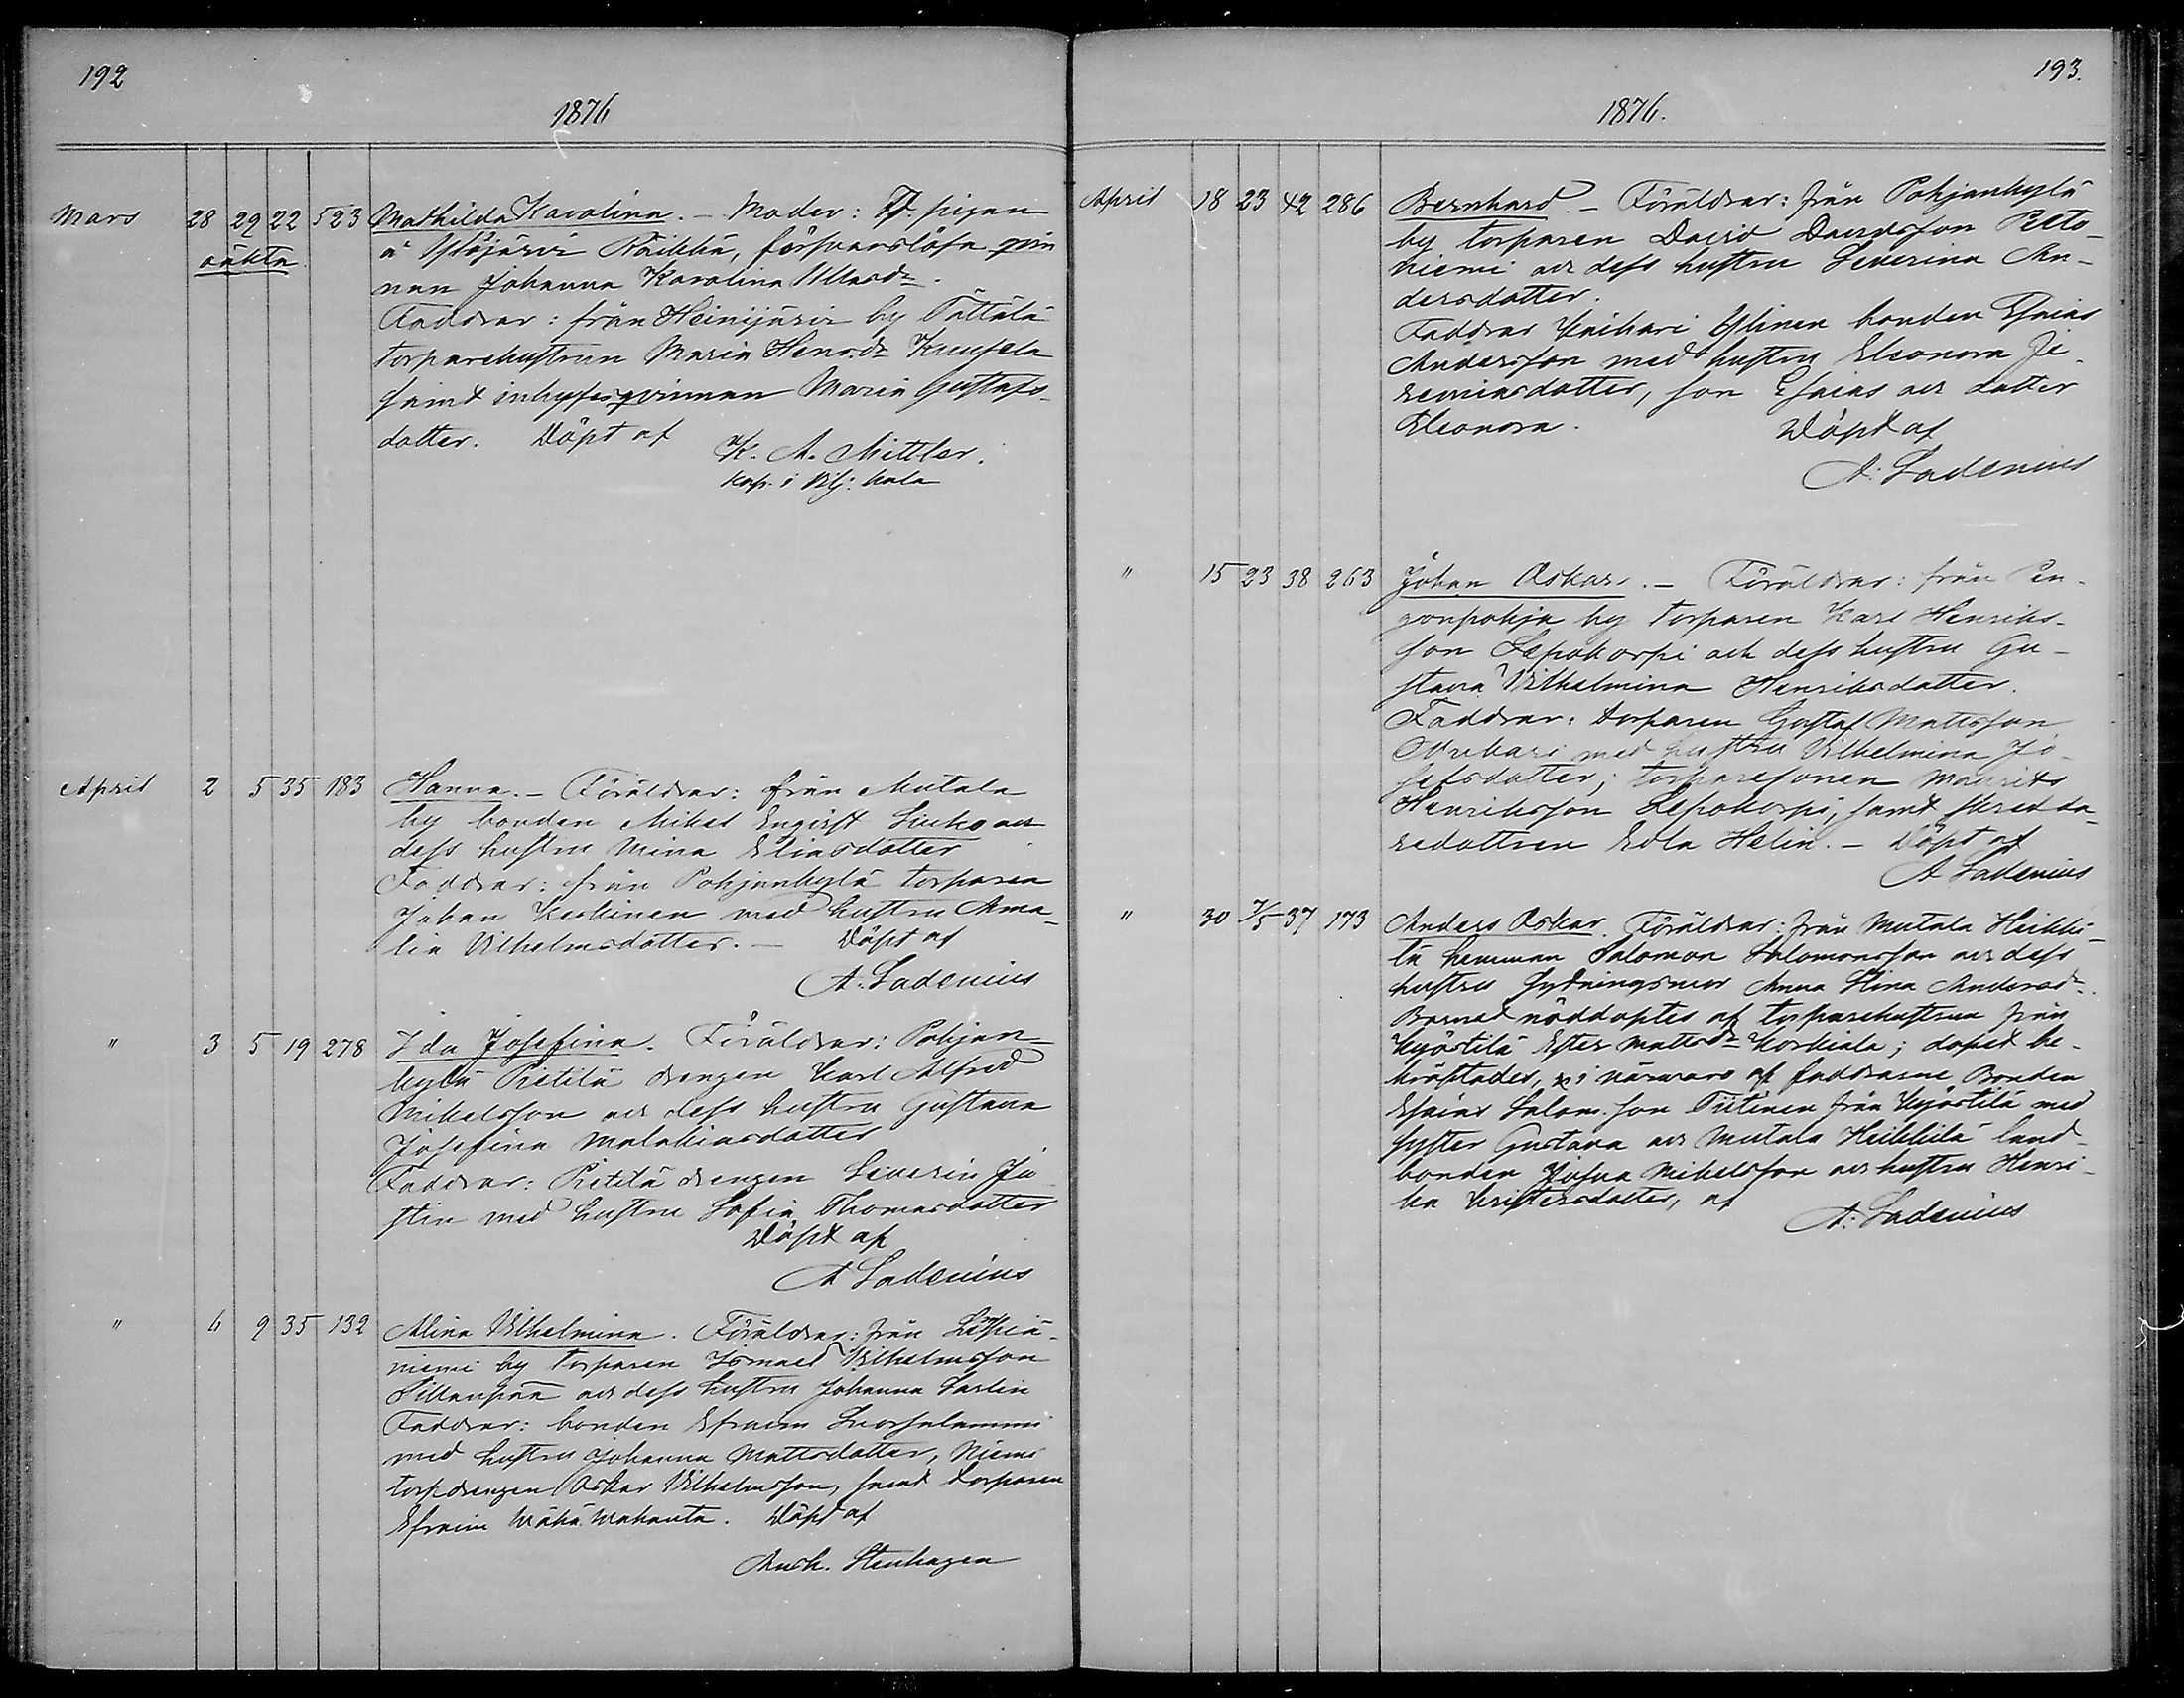 192
1876
Mars 28 29 22 523 Mathilda Karolina. – Moder: pigan
oäkta
å Ylöjärvi Räikkä, försvarslösa qvin
nan Johanna Karolina
Faddrar: från Heinijärvi by Pättälä
torparehustrun Maria Henr.dr
samt inhysesqvinnan Maria Gustafs-
dotter. Döpt af
K. A. Mittler.
kap. i
April 2 5 35 183 Hanna. – Föräldrar: från Mutala
by bonden Mikel och
dess hustru Mina Eliasdotter
Faddrar: från Pohjankylä torparen
Johan Keskinen med hustru Ama-
lia Vilhelmsdotter. – Döpt af
A. Ladenius
" 3 5 19 278 Ida Josefina. Föräldrar: Pohjan-
kylä Pietilä drengen Karl Alfred
Mikelsson och dess hustru Gustava
Josefina Malakiasdotter
Faddrar: Pietilä drengen Severin Ju
stin med hustru Sofia Thomasdotter
Döpt af
A Ladenius
" 6 9 35 132 Alina Vilhelmina. Föräldrar: från
niemi by torparen Ismael Vilhelmsson
Sillanpää och dess hustru Johanna Sarlin
Faddrar: bonden Efraim
med hustru Johanna Mattsdotter, Niemi
torpdrengen Oskar Vilhelmsson, samt torparen
Efraim Wähä Mahanta. Döpt af
Stenhagen
193.
1876.
April 18 23 42 286 Bernhard. – Föräldrar: från Pohjankylä
by torparen David Davidsson Pelto-
niemi och dess hustru Severina An-
dersdotter.
Faddrar Ylinen bonden Esaias
Andersson med hustru Eleonora Je-
remiasdotter, son Esaias och dotter
Eleonora. Döpt af
A. Ladenius
" 15 23 38 263 Johan Oskar. – Föräldrar: från Pen-
gonpohja by torparen Karl Henriks-
son Lepokorpi och dess hustru Gu-
stava Vilhelmina Henriksdotter.
Faddrar: torparen Gustaf Mattsson
med hustru Vilhelmina Jo-
sefsdotter; torparesonen Maurits
Henriksson Lepokorpi, samt skredda-
redottren Edla Helin. – Döpt af
A Ladenius
" 30 7/5 37 173 Anders Oskar. Föräldrar: från Mutala Heikki-
lä hemman Salomon Salomonsson och dess
hustru Anna Stina Andersdr.
Barnet nöddöptes af torparehustrun från
Kyöstilä Ester Mattsdr Koskiala; dopet be-
kräftades, i närvaro af faddrarne Bonden
Esaias Salom.son Tiitinen från Kyöstilä med
syster Gustava och Mutala Heikkilä land-
bonden Josua Mikelsson och hustru Henri-
ka Kristersdotter, af
A. Ladenius